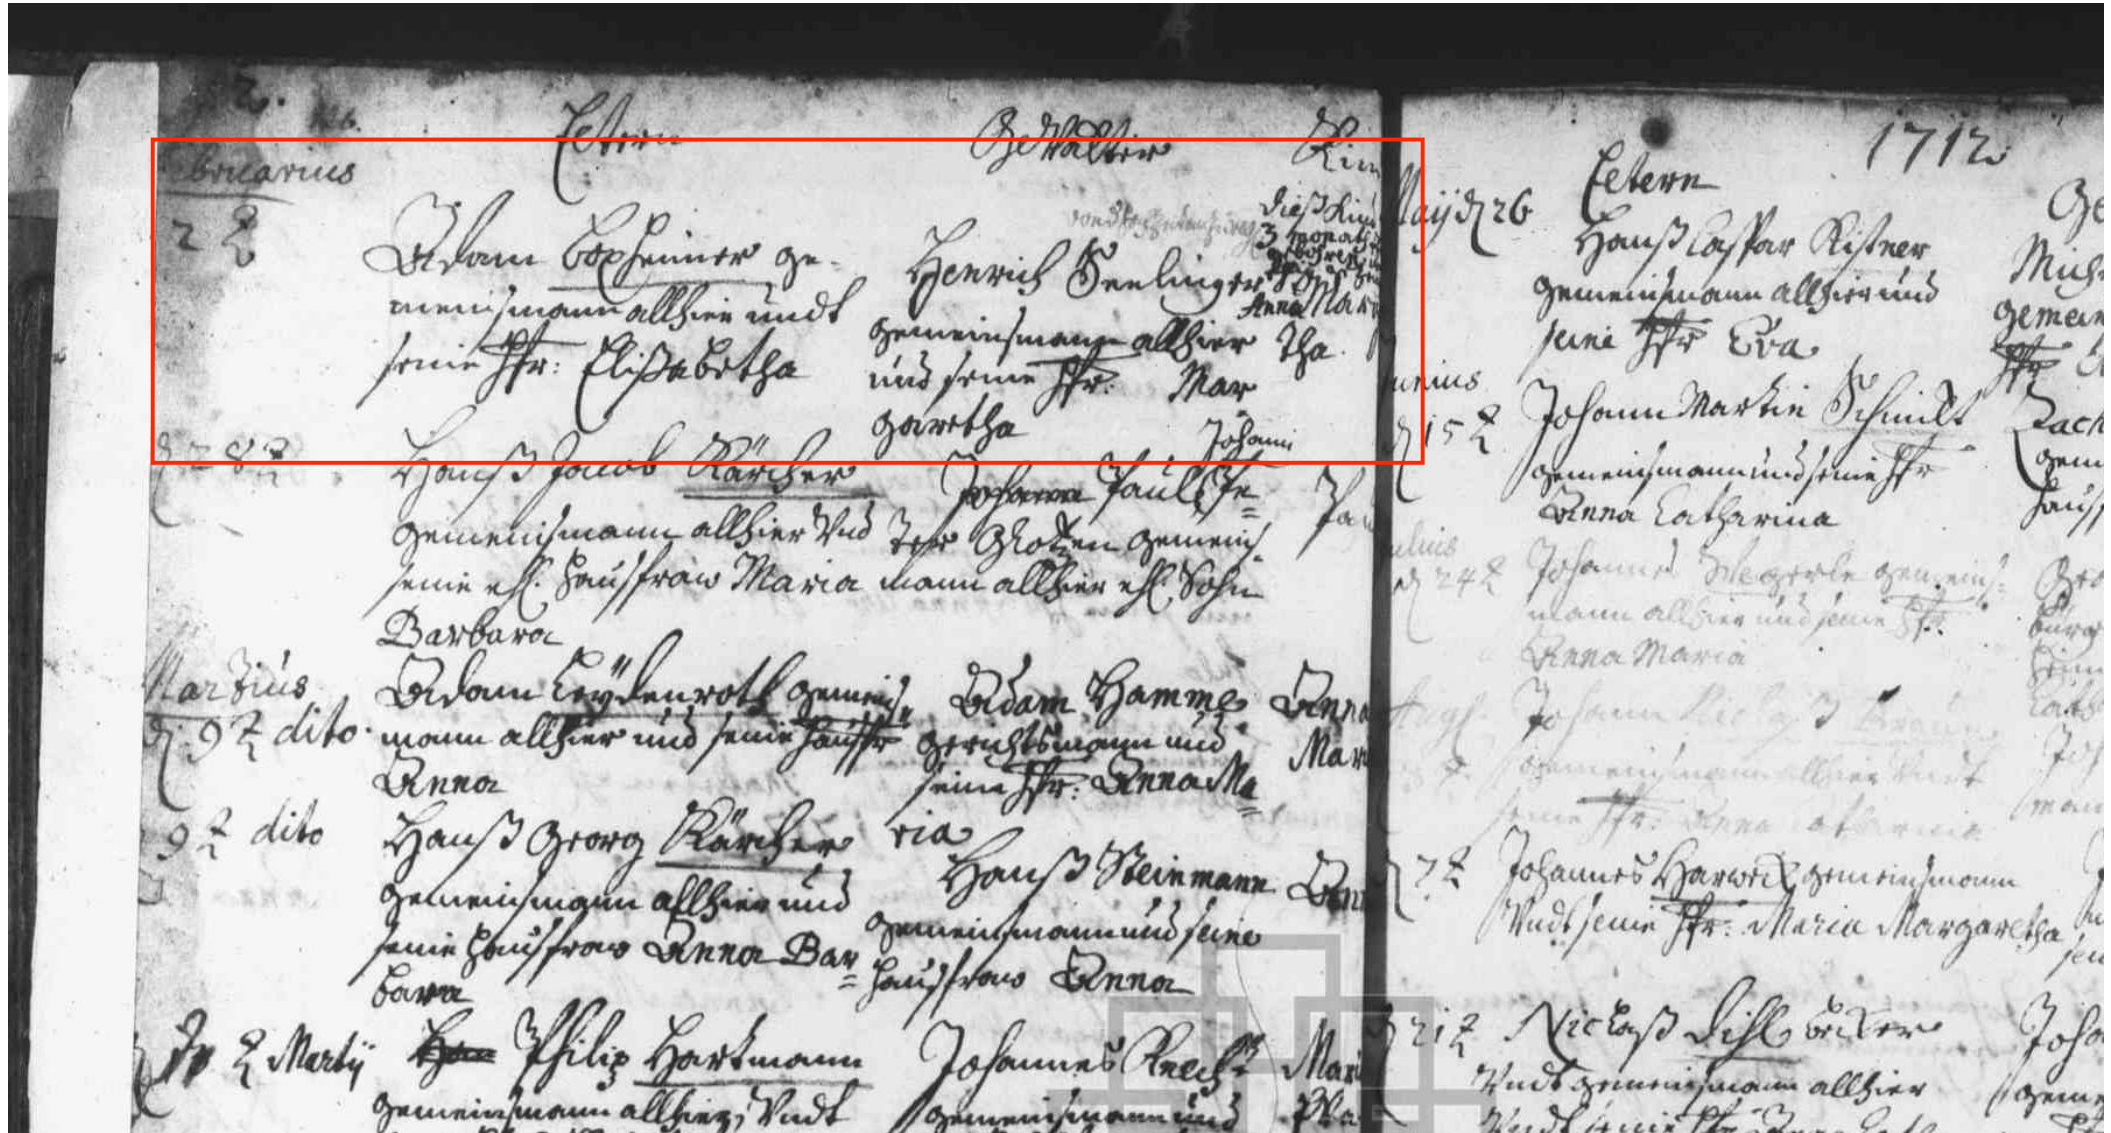 2.
Eltern
GeVatter
Kin
bruarius
2
Adam Boxheimer ge-
meinsmann allhier undt
seine Hfr: Elisabetha
Henrich Seelinger
gemeinsmann allhier
und seine Hfr: Mar
garetha
dieß Kind
3 monath
Anna Mar
tha.
d 28
Hanß Jacob Kärcher
gemeinsmann allhier Vnd
seine ehl. haußfraw Maria
Barbara
Johann
Johann Paul Pe=
ter Glotzen gemeins-
mann allhier ehl. Sohn
Pau
Martius
d. 9 dito
Adam Leydenroth gemeins
mann allhier und seine haußfr
Anna
Adam Hamme
gerichtsmann und
seine Hfr: Anna Ma=
ria
Anna
Mar
9 dito
Hanß Georg Kärcher
gemeinsmann allhier und
seine haußfraw Anna Bar=
bara
Hanß Steinmann
gemeinsmann und seine
haußfraw Anna
Ann
Martij
Philip Hartmann
gemeinsmann allhier, Vndt
Johannes
gemeinsmann und
Mari
1712
Eltern
Ge
Maij d 26
Hanß Caspar Kistner
gemeinsmann allhier und
seine Hfr Eva
Mich
gemein
Hfr
unius
d 15
Johann Martin Schmidt
gemeinsmann und seine Hfr
Anna Catharina
Zach
gem
hauß
ulius
d 24
Johannes Wegerle gemeins-
mann allhier und seine Hfr.
Anna Maria
Geo
bürg
Augs.
Johann
gemeinsmann allhier Vndt
seine Hfr: Anna Catharina
Joh
mann
d 7
Johannes Harweck gemeinsmann
Vndt seine Hfr: Maria Margaretha
d 21
Niclaß Dihl becker
Vndt gemeinsmann allhier
Joha
geme